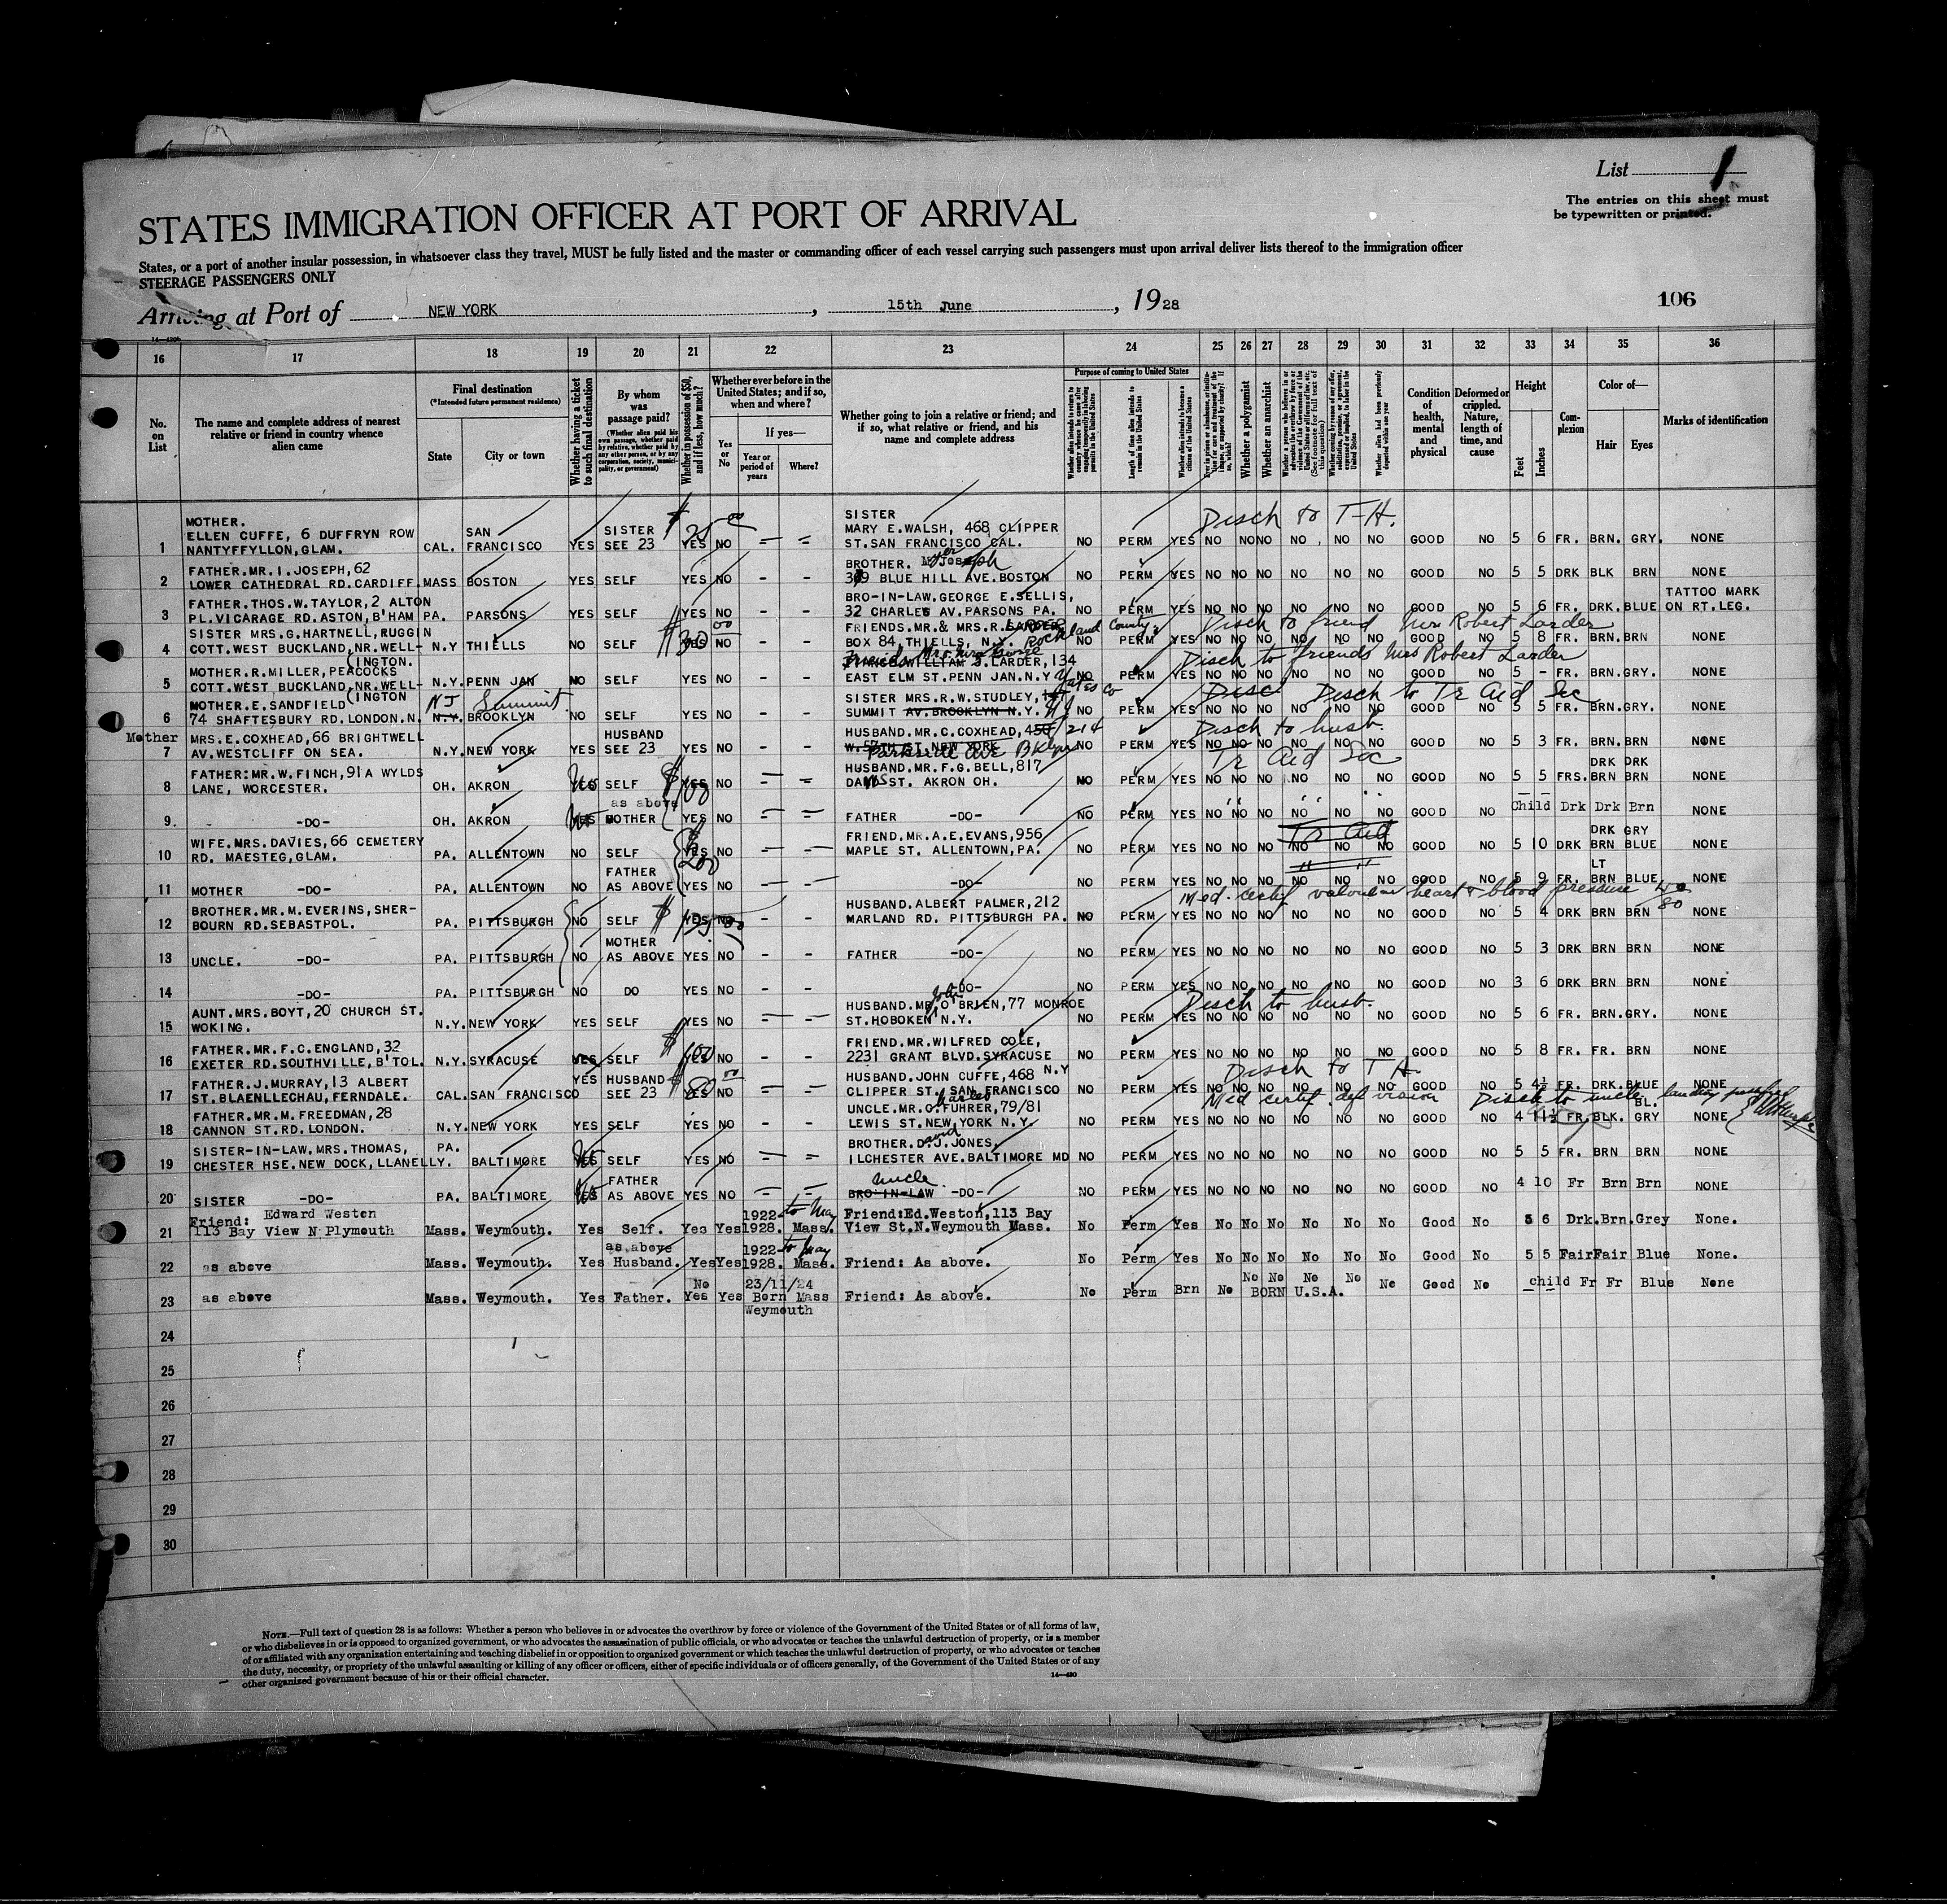 List 1
The entries on this sheet must
be typewritten or printed.
STATES IMMIGRATION OFFICER AT PORT OF ARRIVAL
States, or a port of another insular possession, in whatsoever class they travel, MUST be fully listed and the master or commanding officer of each vessel carrying such passengers must upon arrival deliver lists thereof to the immigration officer
STEERAGE PASSENGERS ONLY
Arriving at Port of NEW YORK, 15th June, 1928
106
16 17 18 19 20 21 22 23 24 25 26 27 28 29 30 31 32 33 34 35 36
No. on List
The name and complete address of nearest relative or friend in country whence alien came
Final destination
(*Intended future permanent residence)
State
City or town
Whether having a ticket to such final destination
By whom was passage paid?
(Whether alien paid his own passage, whether paid by relative, whether paid by any other person, or by any corporation, society, municipality, or government)
Whether in possession of $50, and if less, how much?
Whether ever before in the United States; and if so, when and where?
Yes or No
If yes—
Year or period of years
Where?
Whether going to join a relative or friend; and if so, what relative or friend, and his name and complete address
Purpose of coming to United States
Length of time alien intends to remain in the United States
Whether alien intends to become a citizen of the United States
Whether a polygamist
Whether an anarchist
Condition of health, mental and physical
Deformed or crippled. Nature, length of time, and cause
Height
Feet
Inches
Complexion
Color of—
Hair
Eyes
Marks of identification
1 MOTHER. ELLEN CUFFE, 6 DUFFRYN ROW NANTYFFYLLON, GLAM. CAL. SAN FRANCISCO YES SISTER SEE 23 $25 00 YES NO – – SISTER MARY E.WALSH, 468 CLIPPER ST.SAN FRANCISCO CAL. NO PERM YES NO NO NO NO NO NO GOOD NO 5 6 FR. BRN. GRY. NONE
Disch to T-H.
2 FATHER.MR.I.JOSEPH,62 LOWER CATHEDRAL RD.CARDIFF. MASS BOSTON YES SELF YES NO – – BROTHER. Joseph 309 BLUE HILL AVE.BOSTON NO PERM YES NO NO NO NO NO NO GOOD NO 5 5 DRK BLK BRN NONE
3 FATHER.THOS.W.TAYLOR,2 ALTON PL.VICARAGE RD.ASTON,B'HAM PA. PARSONS YES SELF YES NO – – BRO-IN-LAW.GEORGE E.SELLIS, 32 CHARLES AV.PARSONS PA. NO PERM YES NO NO NO NO NO NO GOOD NO 5 6 FR. DRK.BLUE TATTOO MARK ON RT.LEG.
4 SISTER MRS.G.HARTNELL,RUGGIN COTT.WEST BUCKLAND,NR.WELL-(INGTON. N.Y THIELLS NO SELF $30 00 YES NO – – FRIENDS.MR.& MRS.R.LARDER BOX 84,THIELLS, N.Y. Rockland County NO PERM YES NO NO NO NO NO NO GOOD NO 5 8 FR. BRN.BRN NONE
Disch to friend Mrs Robert Larder
5 MOTHER.R.MILLER,PEACOCKS COTT.WEST BUCKLAND,NR.WELL-(INGTON N.Y. PENN JAN NO SELF YES NO – – WILLIAM J.LARDER,134 EAST ELM ST.PENN JAN.N.Y Yates Co NO PERM YES NO NO NO NO NO NO GOOD NO 5 – FR. BRN.GRY. NONE
Disch to friends Mrs Robert Larder
6 MOTHER.E.SANDFIELD 74 SHAFTESBURY RD.LONDON.N. N.Y. BROOKLYN NJ Summit NO SELF YES NO – – SISTER MRS.R.W.STUDLEY, SUMMIT AV.BROOKLYN N.Y. NJ NO PERM YES NO NO NO NO NO NO GOOD NO 5 5 FR. BRN.GRY. NONE
Disch Disch to Tr Aid Soc
Mother
7 MRS.E.COXHEAD,66 BRIGHTWELL AV.WESTCLIFF ON SEA. N.Y. NEW YORK YES HUSBAND SEE 23 YES NO – – HUSBAND.MR.C.COXHEAD,450 214 W.57TH ST.NEW YORK Parkside Ave Bklyn NO PERM YES NO NO NO NO NO NO GOOD NO 5 3 FR. BRN.BRN NONE
Disch to husb.
8 FATHER:MR.W.FINCH,91A WYLDS LANE, WORCESTER. OH. AKRON No SELF $100 YES NO – – HUSBAND.MR.F.G.BELL,817 DAVIS ST. AKRON OH. NO PERM YES NO NO NO NO NO NO GOOD NO 5 5 FRS. DRK BRN DRK BRN NONE
Tr Aid Soc
9. –DO– OH. AKRON YES as above MOTHER YES NO – – FATHER –DO– NO PERM YES NO NO NO NO NO NO GOOD NO Child Drk Drk Brn NONE
10 WIFE.MRS.DAVIES,66 CEMETERY RD. MAESTEG,GLAM. PA. ALLENTOWN NO SELF $200 YES NO – – FRIEND.MR.A.E.EVANS,956 MAPLE ST. ALLENTOWN,PA. NO PERM YES NO NO NO NO NO NO GOOD NO 5 10 DRK DRK BRN GRY BLUE NONE
Tr Aid
11 MOTHER –DO– PA. ALLENTOWN NO FATHER AS ABOVE YES NO – – –DO– NO PERM YES NO NO NO NO NO NO GOOD NO 5 9 FR. LT BRN BLUE NONE
Med. certif valvular heart & blood pressure
12 BROTHER.MR.M.EVERINS,SHERBOURN RD.SEBASTPOL. PA. PITTSBURGH NO SELF $ YES NO – – HUSBAND.ALBERT PALMER,212 MARLAND RD. PITTSBURGH PA. NO PERM YES NO NO NO NO NO NO GOOD NO 5 4 DRK BRN BRN NONE
13 UNCLE. –DO– PA. PITTSBURGH NO MOTHER AS ABOVE YES NO – – FATHER –DO– NO PERM YES NO NO NO NO NO NO GOOD NO 5 3 DRK BRN BRN NONE
14 –DO– PA. PITTSBURGH NO DO YES NO – – –DO– NO PERM YES NO NO NO NO NO NO GOOD NO 3 6 DRK BRN BRN NONE
15 AUNT.MRS.BOYT,20 CHURCH ST. WOKING. N.Y. NEW YORK YES SELF YES NO – – HUSBAND.MR.O'BRIEN,77 MONROE ST.HOBOKEN N.Y. NO PERM YES NO NO NO NO NO NO GOOD NO 5 6 FR. BRN.GRY. NONE
Disch to husb.
16 FATHER.MR.F.C.ENGLAND,32 EXETER RD.SOUTHVILLE,B'TOL. N.Y. SYRACUSE YES SELF $100 YES NO – – FRIEND.MR.WILFRED COLE, 2231 GRANT BLVD.SYRACUSE N.Y NO PERM YES NO NO NO NO NO NO GOOD NO 5 8 FR. FR. BRN NONE
17 FATHER.J.MURRAY,13 ALBERT ST.BLAENLLECHAU,FERNDALE. CAL. SAN FRANCISCO YES HUSBAND SEE 23 $80 00 YES NO – – HUSBAND.JOHN CUFFE,468 CLIPPER ST.,SAN.FRANCISCO NO PERM YES NO NO NO NO NO NO GOOD NO 5 4½ FR. DRK.BLUE NONE
Disch to T H.
Med certif def vision Disch to uncle
18 FATHER.MR.M.FREEDMAN,28 CANNON ST.RD.LONDON. N.Y. NEW YORK YES SELF YES NO – – UNCLE.MR.C.FUHRER,79/81 Charles LEWIS ST.NEW YORK N.Y. NO PERM YES NO NO NO NO NO NO GOOD NO 4 11½ FR. BLK. BL. GRY NONE
19 SISTER-IN-LAW.MRS.THOMAS, CHESTER HSE.NEW DOCK,LLANELLY. PA. BALTIMORE SELF YES NO – – BROTHER.D.J.JONES, David ILCHESTER AVE.BALTIMORE MD NO PERM YES NO NO NO NO NO NO GOOD NO 5 5 FR. BRN BRN NONE
20 SISTER –DO– PA. BALTIMORE FATHER AS ABOVE YES NO – – uncle BRO-IN-LAW –DO– NO PERM YES NO NO NO NO NO NO GOOD NO 4 10 Fr Brn Brn NONE
21 Friend: Edward Westen 113 Bay View N Plymouth Mass. Weymouth. Yes Self. Yes Yes 1922 to May 1928. Mass. Friend:Ed.Weston,113 Bay View St.N.Weymouth Mass. No Perm Yes No No No No No No Good No 5 6 Drk.Brn.Grey None.
22 as above Mass. Weymouth. Yes as above Husband. Yes Yes 1922 to May 1928. Mass. Friend: As above. No Perm Yes No No No No No No Good No 5 5 Fair Fair Blue None.
23 as above Mass. Weymouth. Yes Father. No Yes Yes 23/11/24 Born Mass Weymouth Friend: As above. No Perm Brn No No No No No BORN U.S.A. No Good No child Fr Fr Blue None
24
25
26
27
28
29
30
NOTE.—Full text of question 28 is as follows: Whether a person who believes in or advocates the overthrow by force or violence of the Government of the United States or of all forms of law,
or who disbelieves in or is opposed to organized government, or who advocates the assassination of public officials, or who advocates or teaches the unlawful destruction of property, or is a member
of or affiliated with any organization entertaining and teaching disbelief in or opposition to organized government or which teaches the unlawful destruction of property, or who advocates or teaches
the duty, necessity, or propriety of the unlawful assaulting or killing of any officer or officers, either of specific individuals or of officers generally, of the Government of the United States or of any
other organized government because of his or their official character.
14—430